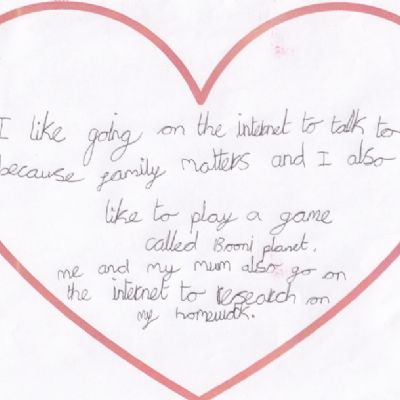 I like going on the internet to talk to
because family matters and I also
like to play a game
called Booni planet.
me and my mum also go on
the internet to research on
my homewok.